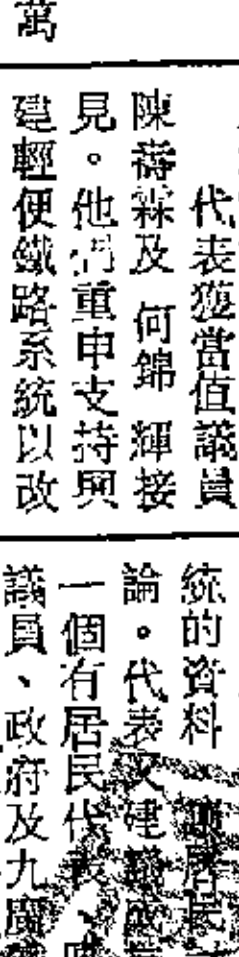 萬
代表獲當值議員
陳壽霖及何錦輝接
見。他們重申支持興
建輕便鐵路系統以改
統的資料
論。代表又建議成
一個有居民代表、
議員、政府及九廣鐵